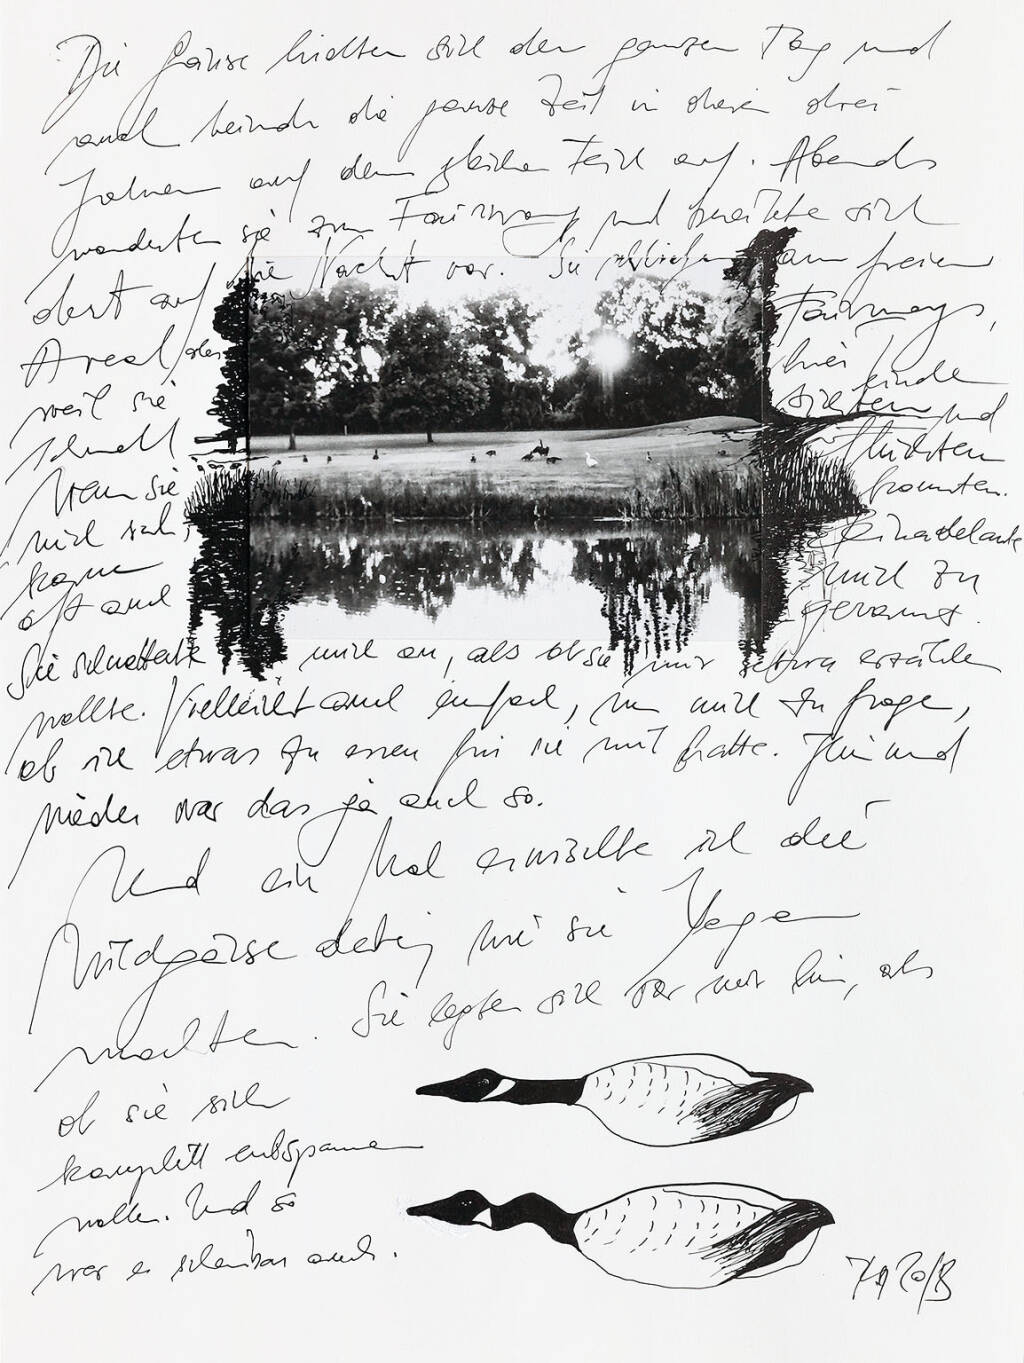 Die Gänse hielten sich den ganzen Tag und
auch beinah die ganze Zeit in diesen drei
Jahren auf dem gleichen Teich auf. Abends
wanderten sie zum Fairway und breitete sich
dort auf die Nacht vor. Sie schliefen am freien
Areal des Fairways,
weil sie hier
schnell und
flüchten
Wenn sie konnten.
mich sah,
kamen mich zu
oft auch gerannt.
Sie schnatterte mich an, als ob sie mir etwas erzählen
wollte. Vielleicht auch einfach, um mich zu fragen,
ob ich etwas zu essen für sie mit hatte. Hin und
wieder war das ja auch so.
Und ein Mal erwischte ich die
Wildgänse dabei, wie sie Yoga
machten. Sie legten sich vor mir hin, als
ob sie sich
komplett entspannen
wollen. Und so
war es scheinbar auch.